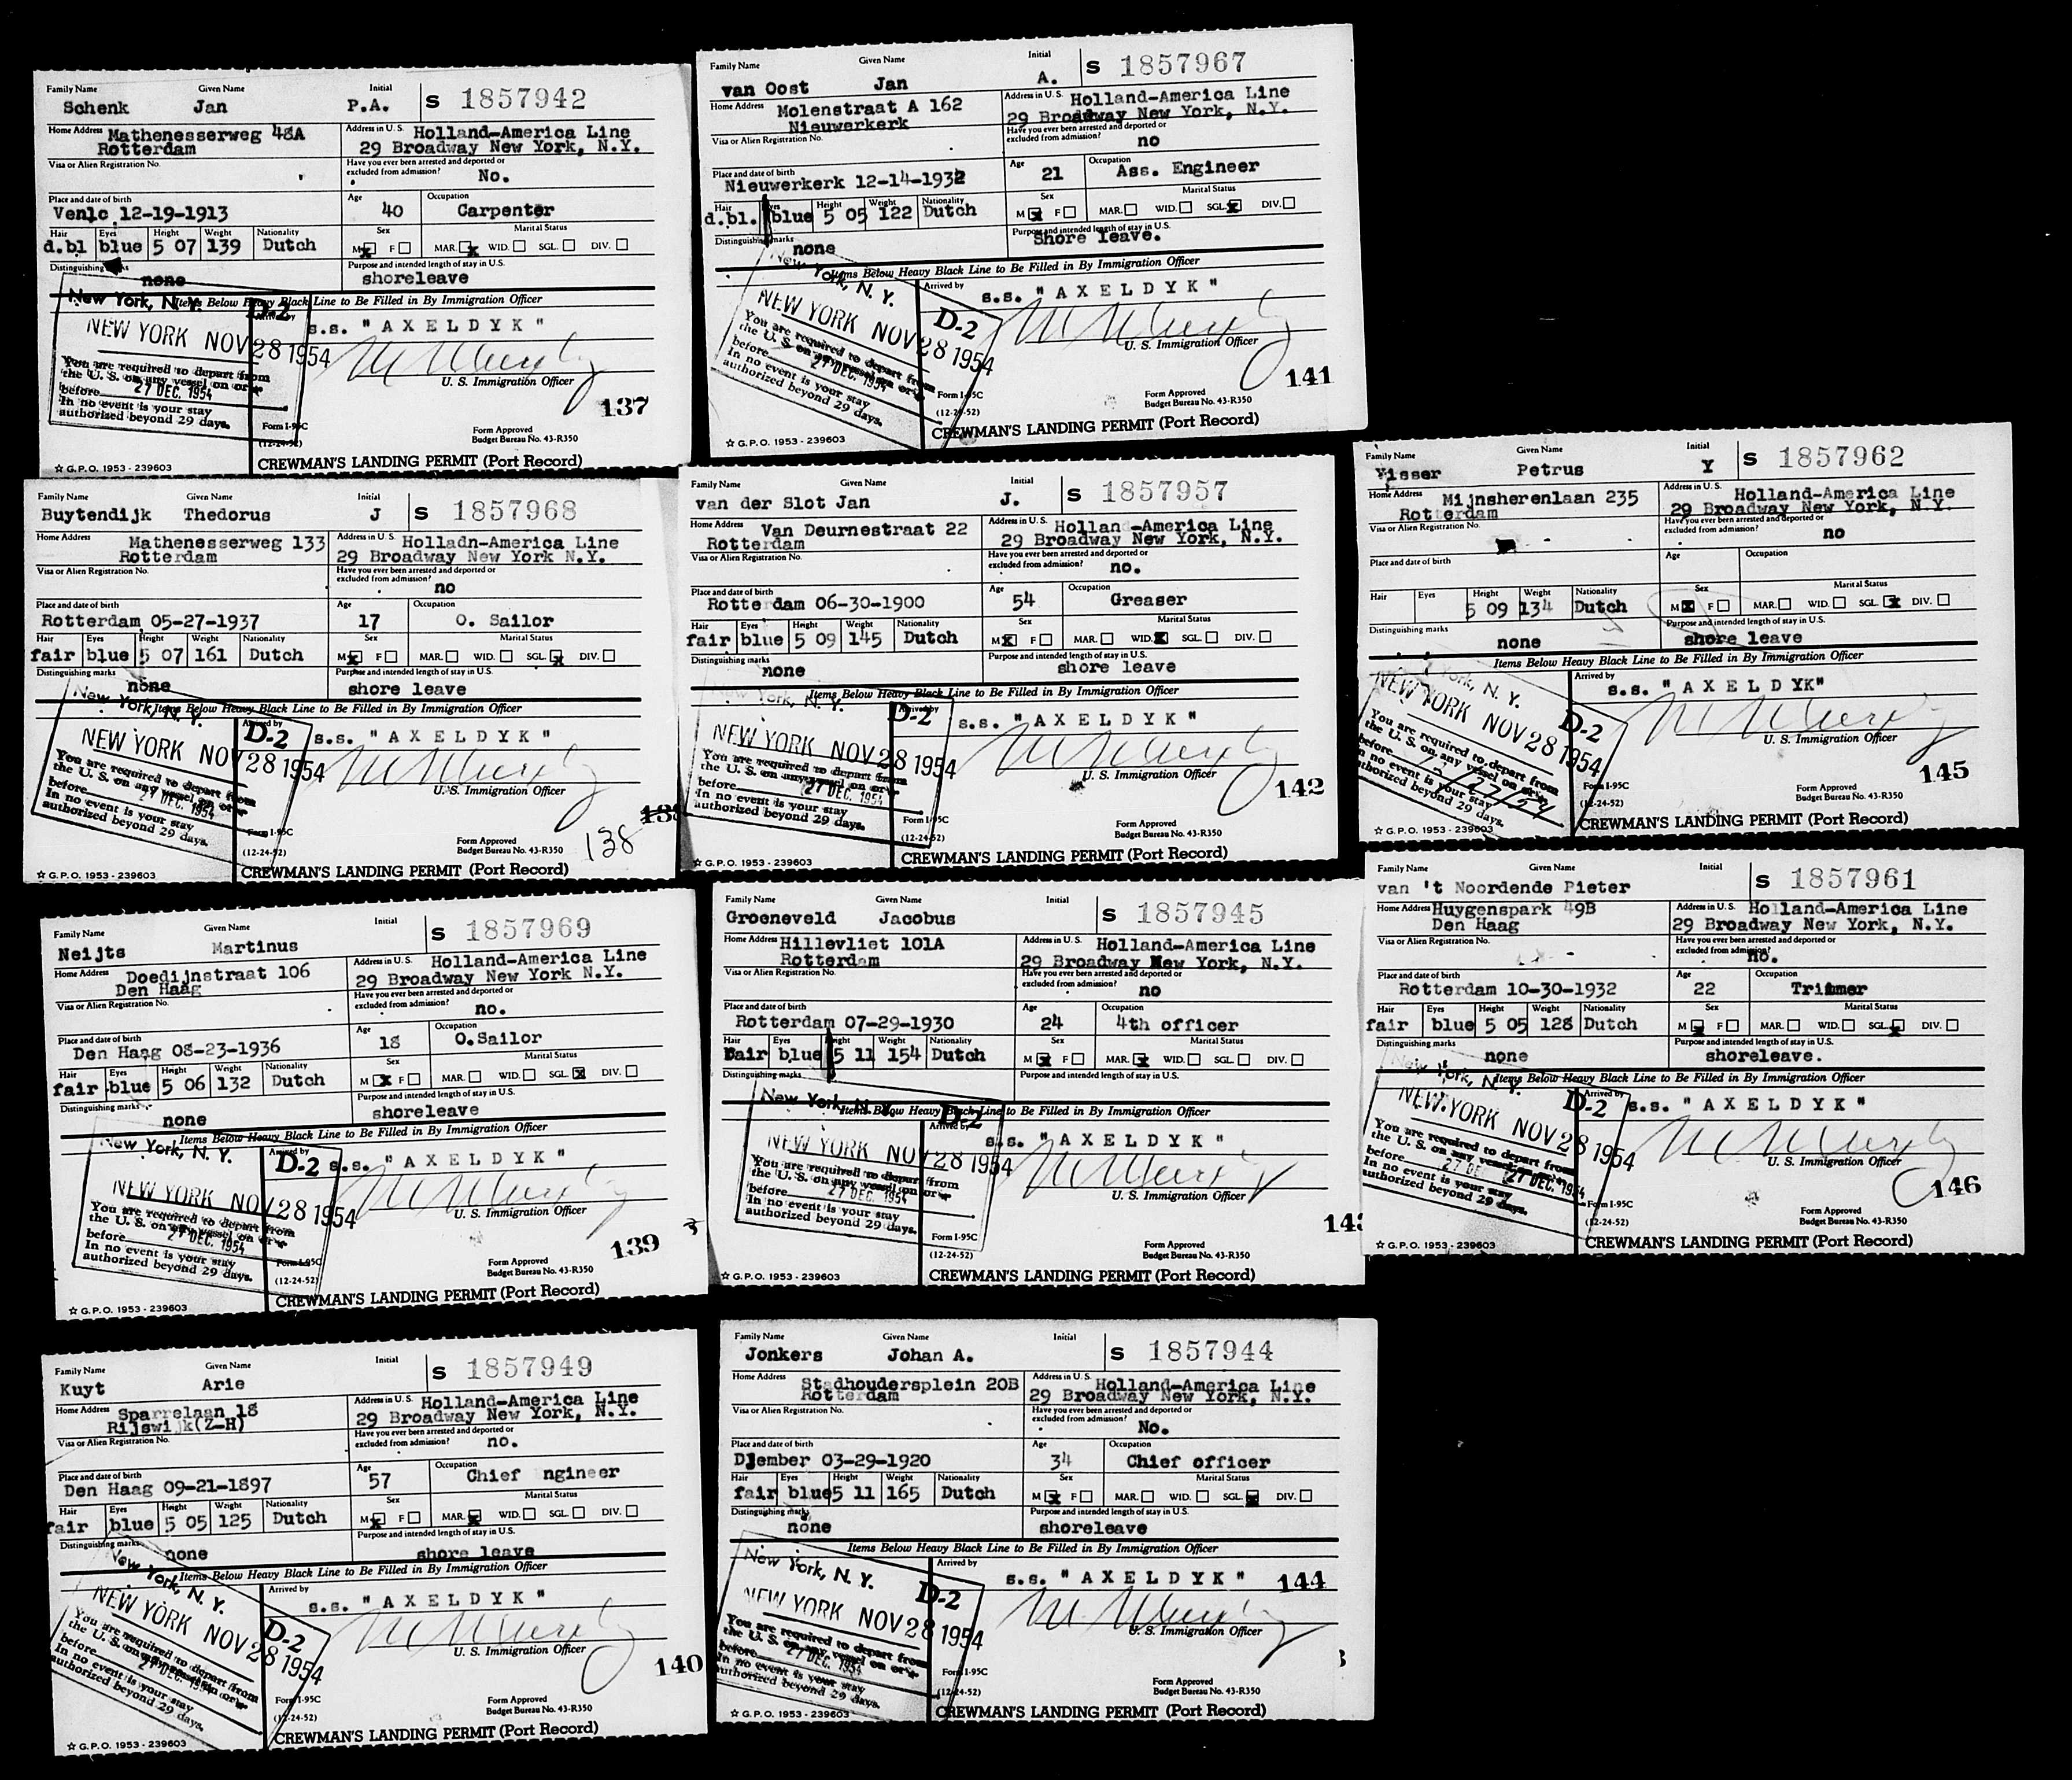 Family Name Given Name Initial
Schenk Jan P.A. S 1857942
Home Address Mathenesserweg 48A Address in U.S. Holland-America Line
Rotterdam 29 Broadway New York, N.Y.
Visa or Alien Registration No. Have you ever been arrested and deported or
excluded from admission? No.
Place and date of birth Age Occupation
Venlo 12-19-1913 40 Carpenter
Hair Eyes Height Weight Nationality Sex Marital Status
d.bl blue 5 07 139 Dutch M F MAR. WID. SGL. DIV.
Distinguishing marks Purpose and intended length of stay in U.S.
none shoreleave
Items Below Heavy Black Line to Be Filled in By Immigration Officer
New York, N.Y. D-2 Arrived by
s.s. "AXELDYK"
NEW YORK NOV 28 1954
You are required to depart from
the U.S. on any vessel on or
before 27 DEC. 1954
In no event is your stay
authorized beyond 29 days.
U. S. Immigration Officer
137
Form I-95C
(12-24-52)
Form Approved
Budget Bureau No. 43-R350
☆ G.P.O. 1953 - 239603 CREWMAN'S LANDING PERMIT (Port Record)
Family Name Given Name Initial
Buytendijk Thedorus J S 1857968
Home Address Mathenesserweg 133 Address in U.S. Holladn-America Line
Rotterdam 29 Broadway New York N.Y.
Visa or Alien Registration No. Have you ever been arrested and deported or
excluded from admission? no
Place and date of birth Age Occupation
Rotterdam 05-27-1937 17 O. Sailor
Hair Eyes Height Weight Nationality Sex Marital Status
fair blue 5 07 161 Dutch M F MAR. WID. SGL. DIV.
Distinguishing marks Purpose and intended length of stay in U.S.
none shore leave
Items Below Heavy Black Line to Be Filled in By Immigration Officer
New York, N.Y. D-2 Arrived by
s.s. "AXELDYK"
NEW YORK NOV 28 1954
You are required to depart from
the U.S. on any vessel on or
before 27 DEC. 1954
In no event is your stay
authorized beyond 29 days.
U. S. Immigration Officer
138
Form I-95C
(12-24-52)
Form Approved
Budget Bureau No. 43-R350
☆ G.P.O. 1953 - 239603 CREWMAN'S LANDING PERMIT (Port Record)
Family Name Given Name Initial
Neijts Martinus S 1857969
Home Address Doedijnstraat 106 Address in U.S. Holland-America Line
Den Haag 29 Broadway New York N.Y.
Visa or Alien Registration No. Have you ever been arrested and deported or
excluded from admission? no.
Place and date of birth Age Occupation
Den Haag 08-23-1936 18 O.Sailor
Hair Eyes Height Weight Nationality Sex Marital Status
fair blue 5 06 132 Dutch M F MAR. WID. SGL. DIV.
Distinguishing marks Purpose and intended length of stay in U.S.
none shoreleave
Items Below Heavy Black Line to Be Filled in By Immigration Officer
New York, N.Y. D-2 Arrived by
s.s. "AXELDYK"
NEW YORK NOV 28 1954
You are required to depart from
the U.S. on any vessel on or
before 27 DEC. 1954
In no event is your stay
authorized beyond 29 days.
U. S. Immigration Officer
139
Form I-95C
(12-24-52)
Form Approved
Budget Bureau No. 43-R350
☆ G.P.O. 1953 - 239603 CREWMAN'S LANDING PERMIT (Port Record)
Family Name Given Name Initial
Kuyt Arie S 1857949
Home Address Sparrelaan 18 Address in U.S. Holland-America Line
Rijswijk(Z-H) 29 Broadway New York, N.Y.
Visa or Alien Registration No. Have you ever been arrested and deported or
excluded from admission? no.
Place and date of birth Age Occupation
Den Haag 09-21-1897 57 Chief ngineer
Hair Eyes Height Weight Nationality Sex Marital Status
fair blue 5 05 125 Dutch M F MAR. WID. SGL. DIV.
Distinguishing marks Purpose and intended length of stay in U.S.
none shore leave
Items Below Heavy Black Line to Be Filled in By Immigration Officer
New York, N.Y. D-2 Arrived by
s.s. "AXELDYK"
NEW YORK NOV 28 1954
You are required to depart from
the U.S. on any vessel on or
before 27 DEC. 1954
In no event is your stay
authorized beyond 29 days.
U. S. Immigration Officer
140
Form I-95C
(12-24-52)
Form Approved
Budget Bureau No. 43-R350
☆ G.P.O. 1953 - 239603 CREWMAN'S LANDING PERMIT (Port Record)
Family Name Given Name Initial
van Oost Jan A. S 1857967
Home Address Molenstraat A 162 Address in U.S. Holland-America Line
Nieuwerkerk 29 Broadway New York, N.Y.
Visa or Alien Registration No. Have you ever been arrested and deported or
excluded from admission? no
Place and date of birth Age Occupation
Nieuwerkerk 12-14-1932 21 Ass. Engineer
Hair Eyes Height Weight Nationality Sex Marital Status
d.bl. blue 5 05 122 Dutch M F MAR. WID. SGL. DIV.
Distinguishing marks Purpose and intended length of stay in U.S.
none Shore leave.
Items Below Heavy Black Line to Be Filled in By Immigration Officer
New York, N.Y. D-2 Arrived by
s.s. "AXELDYK"
NEW YORK NOV 28 1954
You are required to depart from
the U.S. on any vessel on or
before 27 DEC. 1954
In no event is your stay
authorized beyond 29 days.
U. S. Immigration Officer
141
Form I-95C
(12-24-52)
Form Approved
Budget Bureau No. 43-R350
☆ G.P.O. 1953 - 239603 CREWMAN'S LANDING PERMIT (Port Record)
Family Name Given Name Initial
van der Slot Jan J. S 1857957
Home Address Van Deurnestraat 22 Address in U.S. Hollan -America Line
Rotterdam 29 Broadway New York, N.Y.
Visa or Alien Registration No. Have you ever been arrested and deported or
excluded from admission? no.
Place and date of birth Age Occupation
Rotterdam 06-30-1900 54 Greaser
Hair Eyes Height Weight Nationality Sex Marital Status
fair blue 5 09 145 Dutch M F MAR. WID. SGL. DIV.
Distinguishing marks Purpose and intended length of stay in U.S.
none shore leave
Items Below Heavy Black Line to Be Filled in By Immigration Officer
New York, N.Y. D-2 Arrived by
s.s. "AXELDYK"
NEW YORK NOV 28 1954
You are required to depart from
the U.S. on any vessel on or
before 27 DEC. 1954
In no event is your stay
authorized beyond 29 days.
U. S. Immigration Officer
142
Form I-95C
(12-24-52)
Form Approved
Budget Bureau No. 43-R350
☆ G.P.O. 1953 - 239603 CREWMAN'S LANDING PERMIT (Port Record)
Family Name Given Name Initial
Groeneveld Jacobus S 1857945
Home Address Hillevliet 101A Address in U.S. Holland-America Line
Rotterdam 29 Broadway New York, N.Y.
Visa or Alien Registration No. Have you ever been arrested and deported or
excluded from admission? no
Place and date of birth Age Occupation
Rotterdam 07-29-1930 24 4th officer
Hair Eyes Height Weight Nationality Sex Marital Status
Fair blue 5 11 154 Dutch M F MAR. WID. SGL. DIV.
Distinguishing marks Purpose and intended length of stay in U.S.
Items Below Heavy Black Line to Be Filled in By Immigration Officer
New York, N.Y. D-2 Arrived by
s.s. "AXELDYK"
NEW YORK NOV 28 1954
You are required to depart from
the U.S. on any vessel on or
before 27 DEC. 1954
In no event is your stay
authorized beyond 29 days.
U. S. Immigration Officer
14
Form I-95C
(12-24-52)
Form Approved
Budget Bureau No. 43-R350
☆ G.P.O. 1953 - 239603 CREWMAN'S LANDING PERMIT (Port Record)
Family Name Given Name Initial
Jonkers Johan A. S 1857944
Home Address Stadhoudersplein 20B Address in U.S. Holland-America Line
Rotterdam 29 Broadway New York, N.Y.
Visa or Alien Registration No. Have you ever been arrested and deported or
excluded from admission? No.
Place and date of birth Age Occupation
DJember 03-29-1920 34 Chief officer
Hair Eyes Height Weight Nationality Sex Marital Status
fair blue 5 11 165 Dutch M F MAR. WID. SGL. DIV.
Distinguishing marks Purpose and intended length of stay in U.S.
none shoreleave
Items Below Heavy Black Line to Be Filled in By Immigration Officer
New York, N.Y. D-2 Arrived by
s.s. "AXELDYK" 144
NEW YORK NOV 28 1954
You are required to depart from
the U.S. on any vessel on or
before 27 DEC. 1954
In no event is your stay
authorized beyond 29 days.
U. S. Immigration Officer
Form I-95C
(12-24-52)
Form Approved
Budget Bureau No. 43-R350
☆ G.P.O. 1953 - 239603 CREWMAN'S LANDING PERMIT (Port Record)
Family Name Given Name Initial
Visser Petrus Y S 1857962
Home Address Mijnsherenlaan 235 Address in U.S. Holland-America Line
Rotterdam 29 Broadway New York, N.Y.
Visa or Alien Registration No. Have you ever been arrested and deported or
excluded from admission? no
Place and date of birth Age Occupation
Hair Eyes Height Weight Nationality Sex Marital Status
5 09 134 Dutch M F MAR. WID. SGL. DIV.
Distinguishing marks Purpose and intended length of stay in U.S.
none shore leave
Items Below Heavy Black Line to Be Filled in By Immigration Officer
York, N.Y. D-2 Arrived by
s.s. "AXELDYK"
NEW YORK NOV 28 1954
You are required to depart from
the U.S. on any vessel on or
before 12/27/54
In no event is your stay
authorized beyond 29 days.
U. S. Immigration Officer
145
Form I-95C
(12-24-52)
Form Approved
Budget Bureau No. 43-R350
☆ G.P.O. 1953 - 239603 CREWMAN'S LANDING PERMIT (Port Record)
Family Name Given Name Initial
van 't Noordende Pieter S 1857961
Home Address Huygenspark 49B Address in U.S. Holland-America Line
Den Haag 29 Broadway New York, N.Y.
Visa or Alien Registration No. Have you ever been arrested and deported or
excluded from admission? no.
Place and date of birth Age Occupation
Rotterdam 10-30-1932 22 Trimmer
Hair Eyes Height Weight Nationality Sex Marital Status
fair blue 5 05 128 Dutch M F MAR. WID. SGL. DIV.
Distinguishing marks Purpose and intended length of stay in U.S.
none shoreleave.
Items Below Heavy Black Line to Be Filled in By Immigration Officer
New York, N.Y. D-2 Arrived by
s.s. "AXELDYK"
NEW YORK NOV 28 1954
You are required to depart from
the U.S. on any vessel on or
before 27 DEC. 1954
In no event is your stay
authorized beyond 29 days.
27 DEC. 1954
U. S. Immigration Officer
146
Form I-95C
(12-24-52)
Form Approved
Budget Bureau No. 43-R350
☆ G.P.O. 1953 - 239603 CREWMAN'S LANDING PERMIT (Port Record)